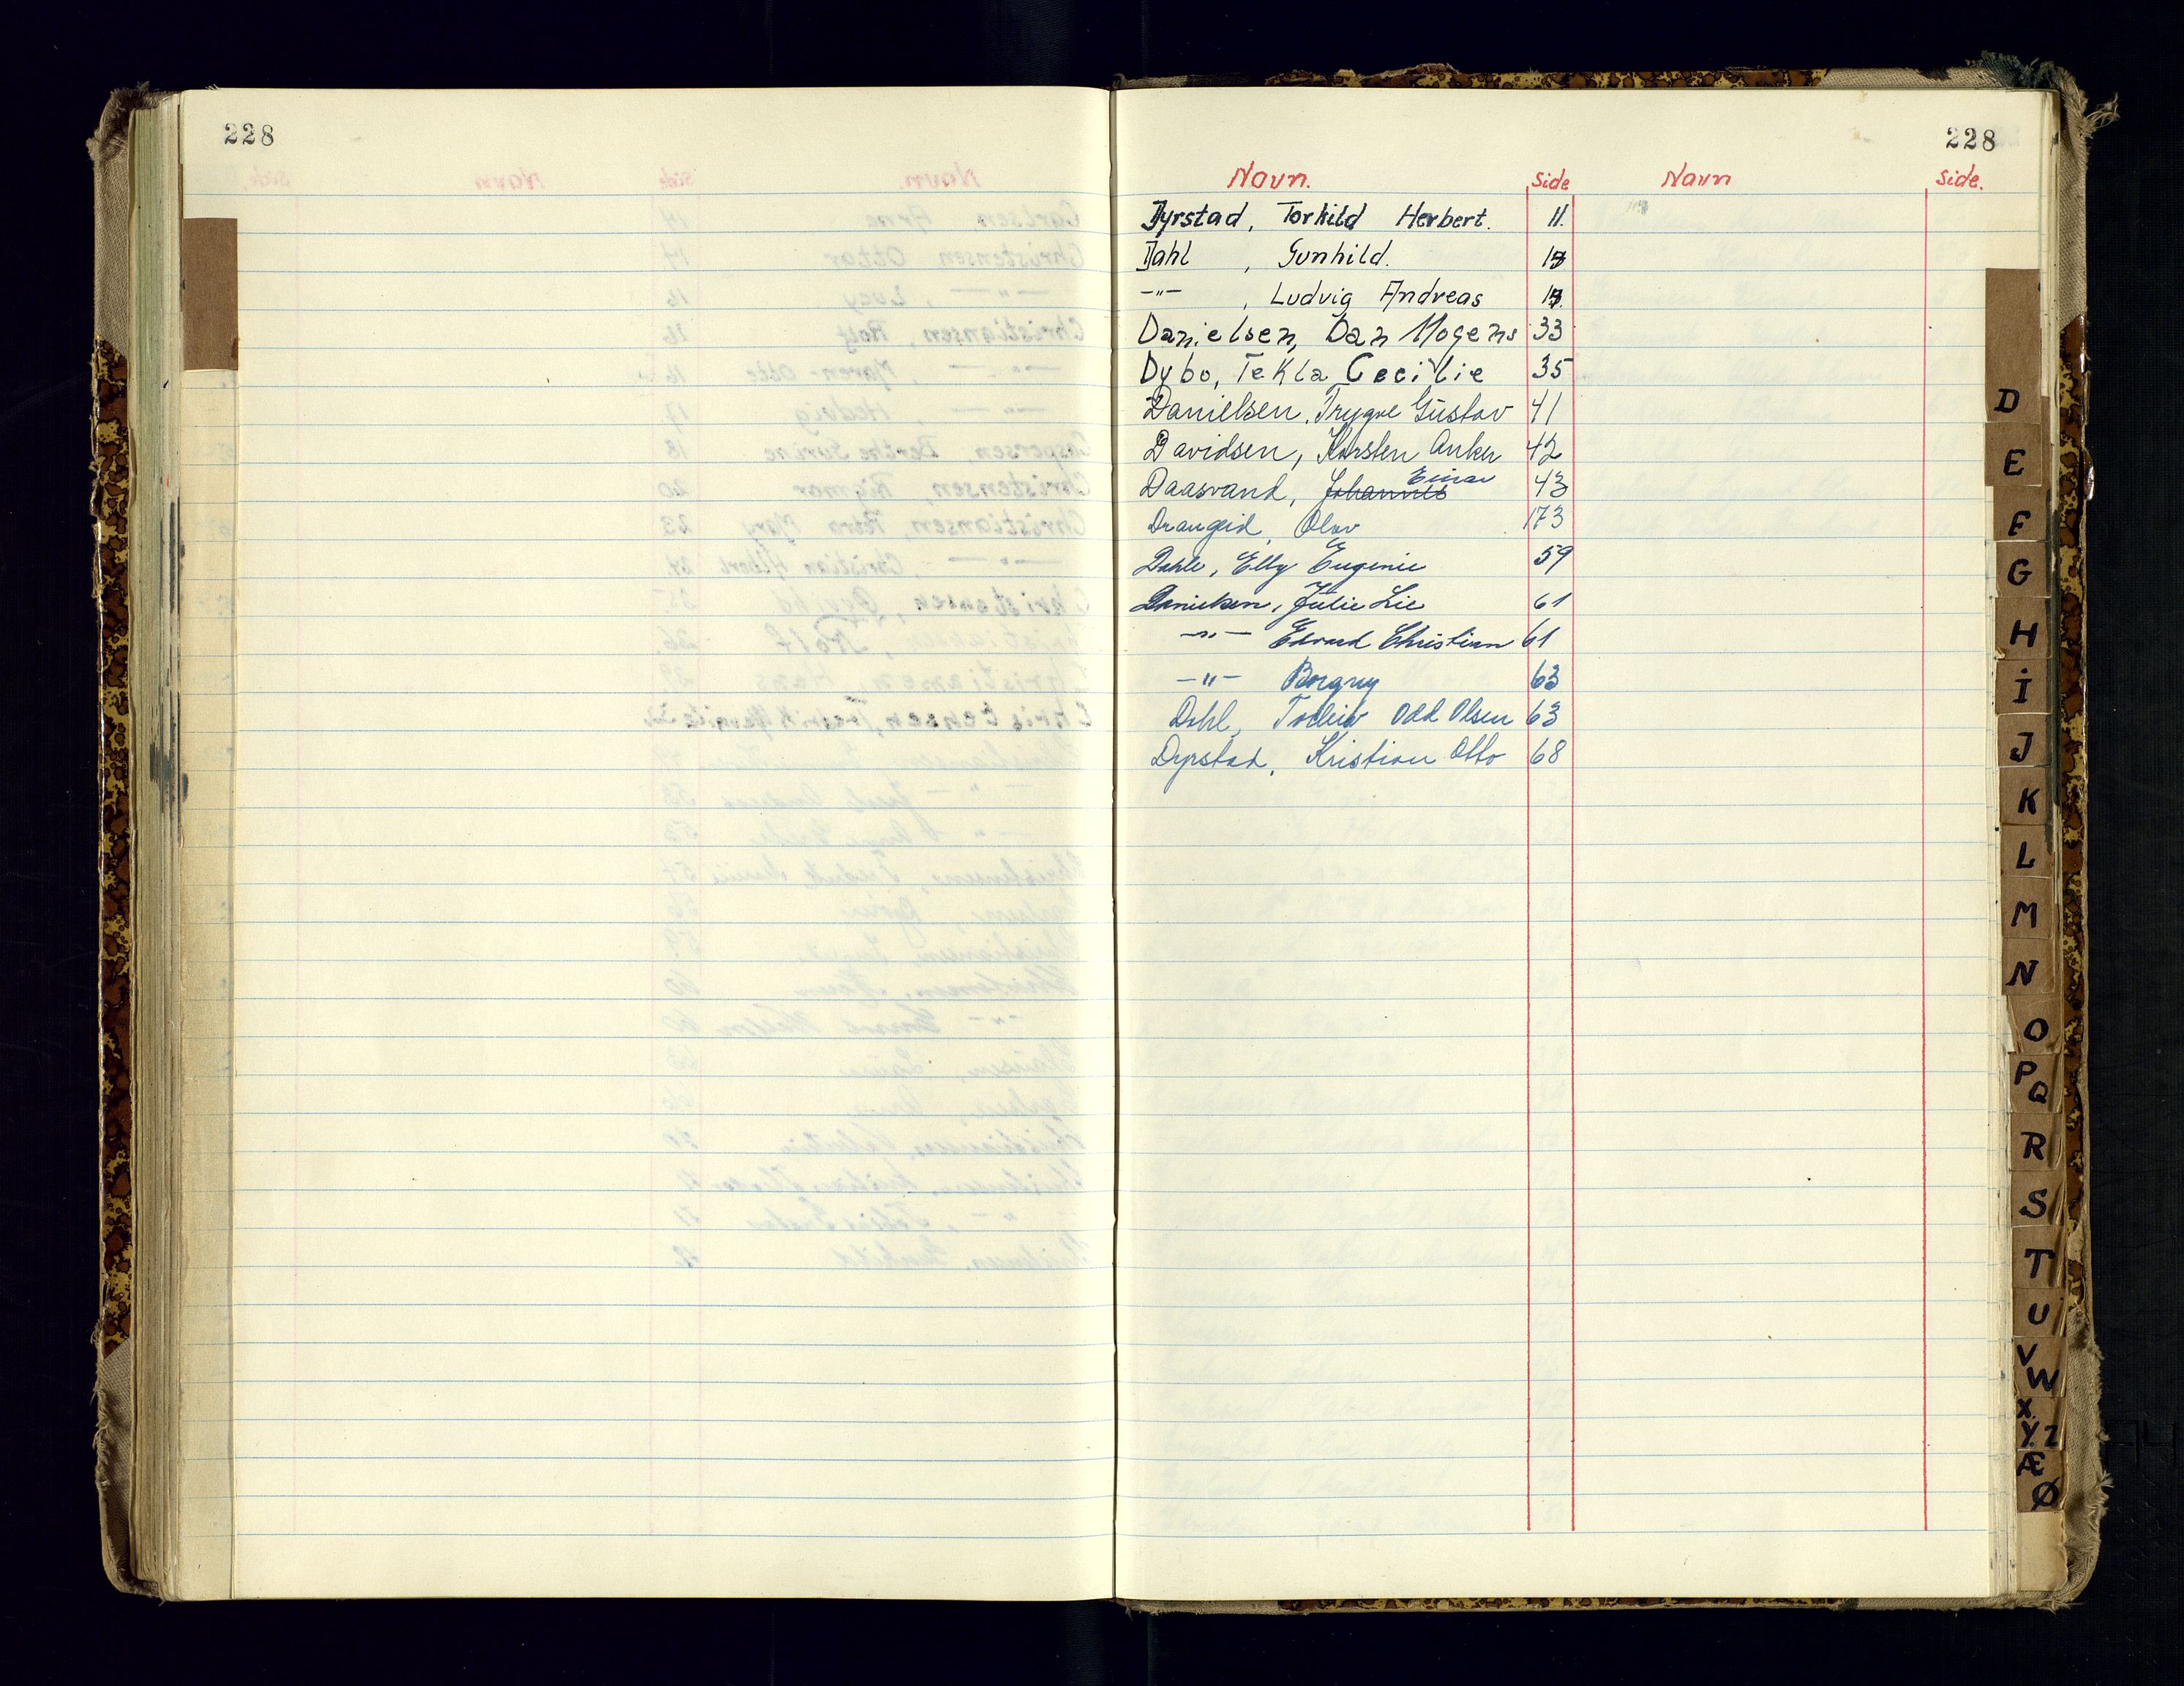 228
228
Navn. Side Navn Side.
Dyrstad, Torkild Herbert. 11.
Dahl, Gunhild.
-"-, Ludvig Andreas
Danielsen, Dan Mogens 33
Dybo, Tekla Cecilie 35
Danielsen, Trygve Gustav 41
Davidsen, Karsten Anker 42
Daasvand, Johannes Einar 43
Draugeid, Olav 173
Dahle, Elly Eugenie 59
Danielsen, Julie Lie 61
-"- Edvard Christian 61
-"- Borgny 63
Dahl, Odd Olsen 63
Dyrstad, Kristian Otto 68
D
E
F
G
H
I
J
K
L
M
N
O
P Q
R
S
T
U
V W
X. Y. Z
Æ Ø